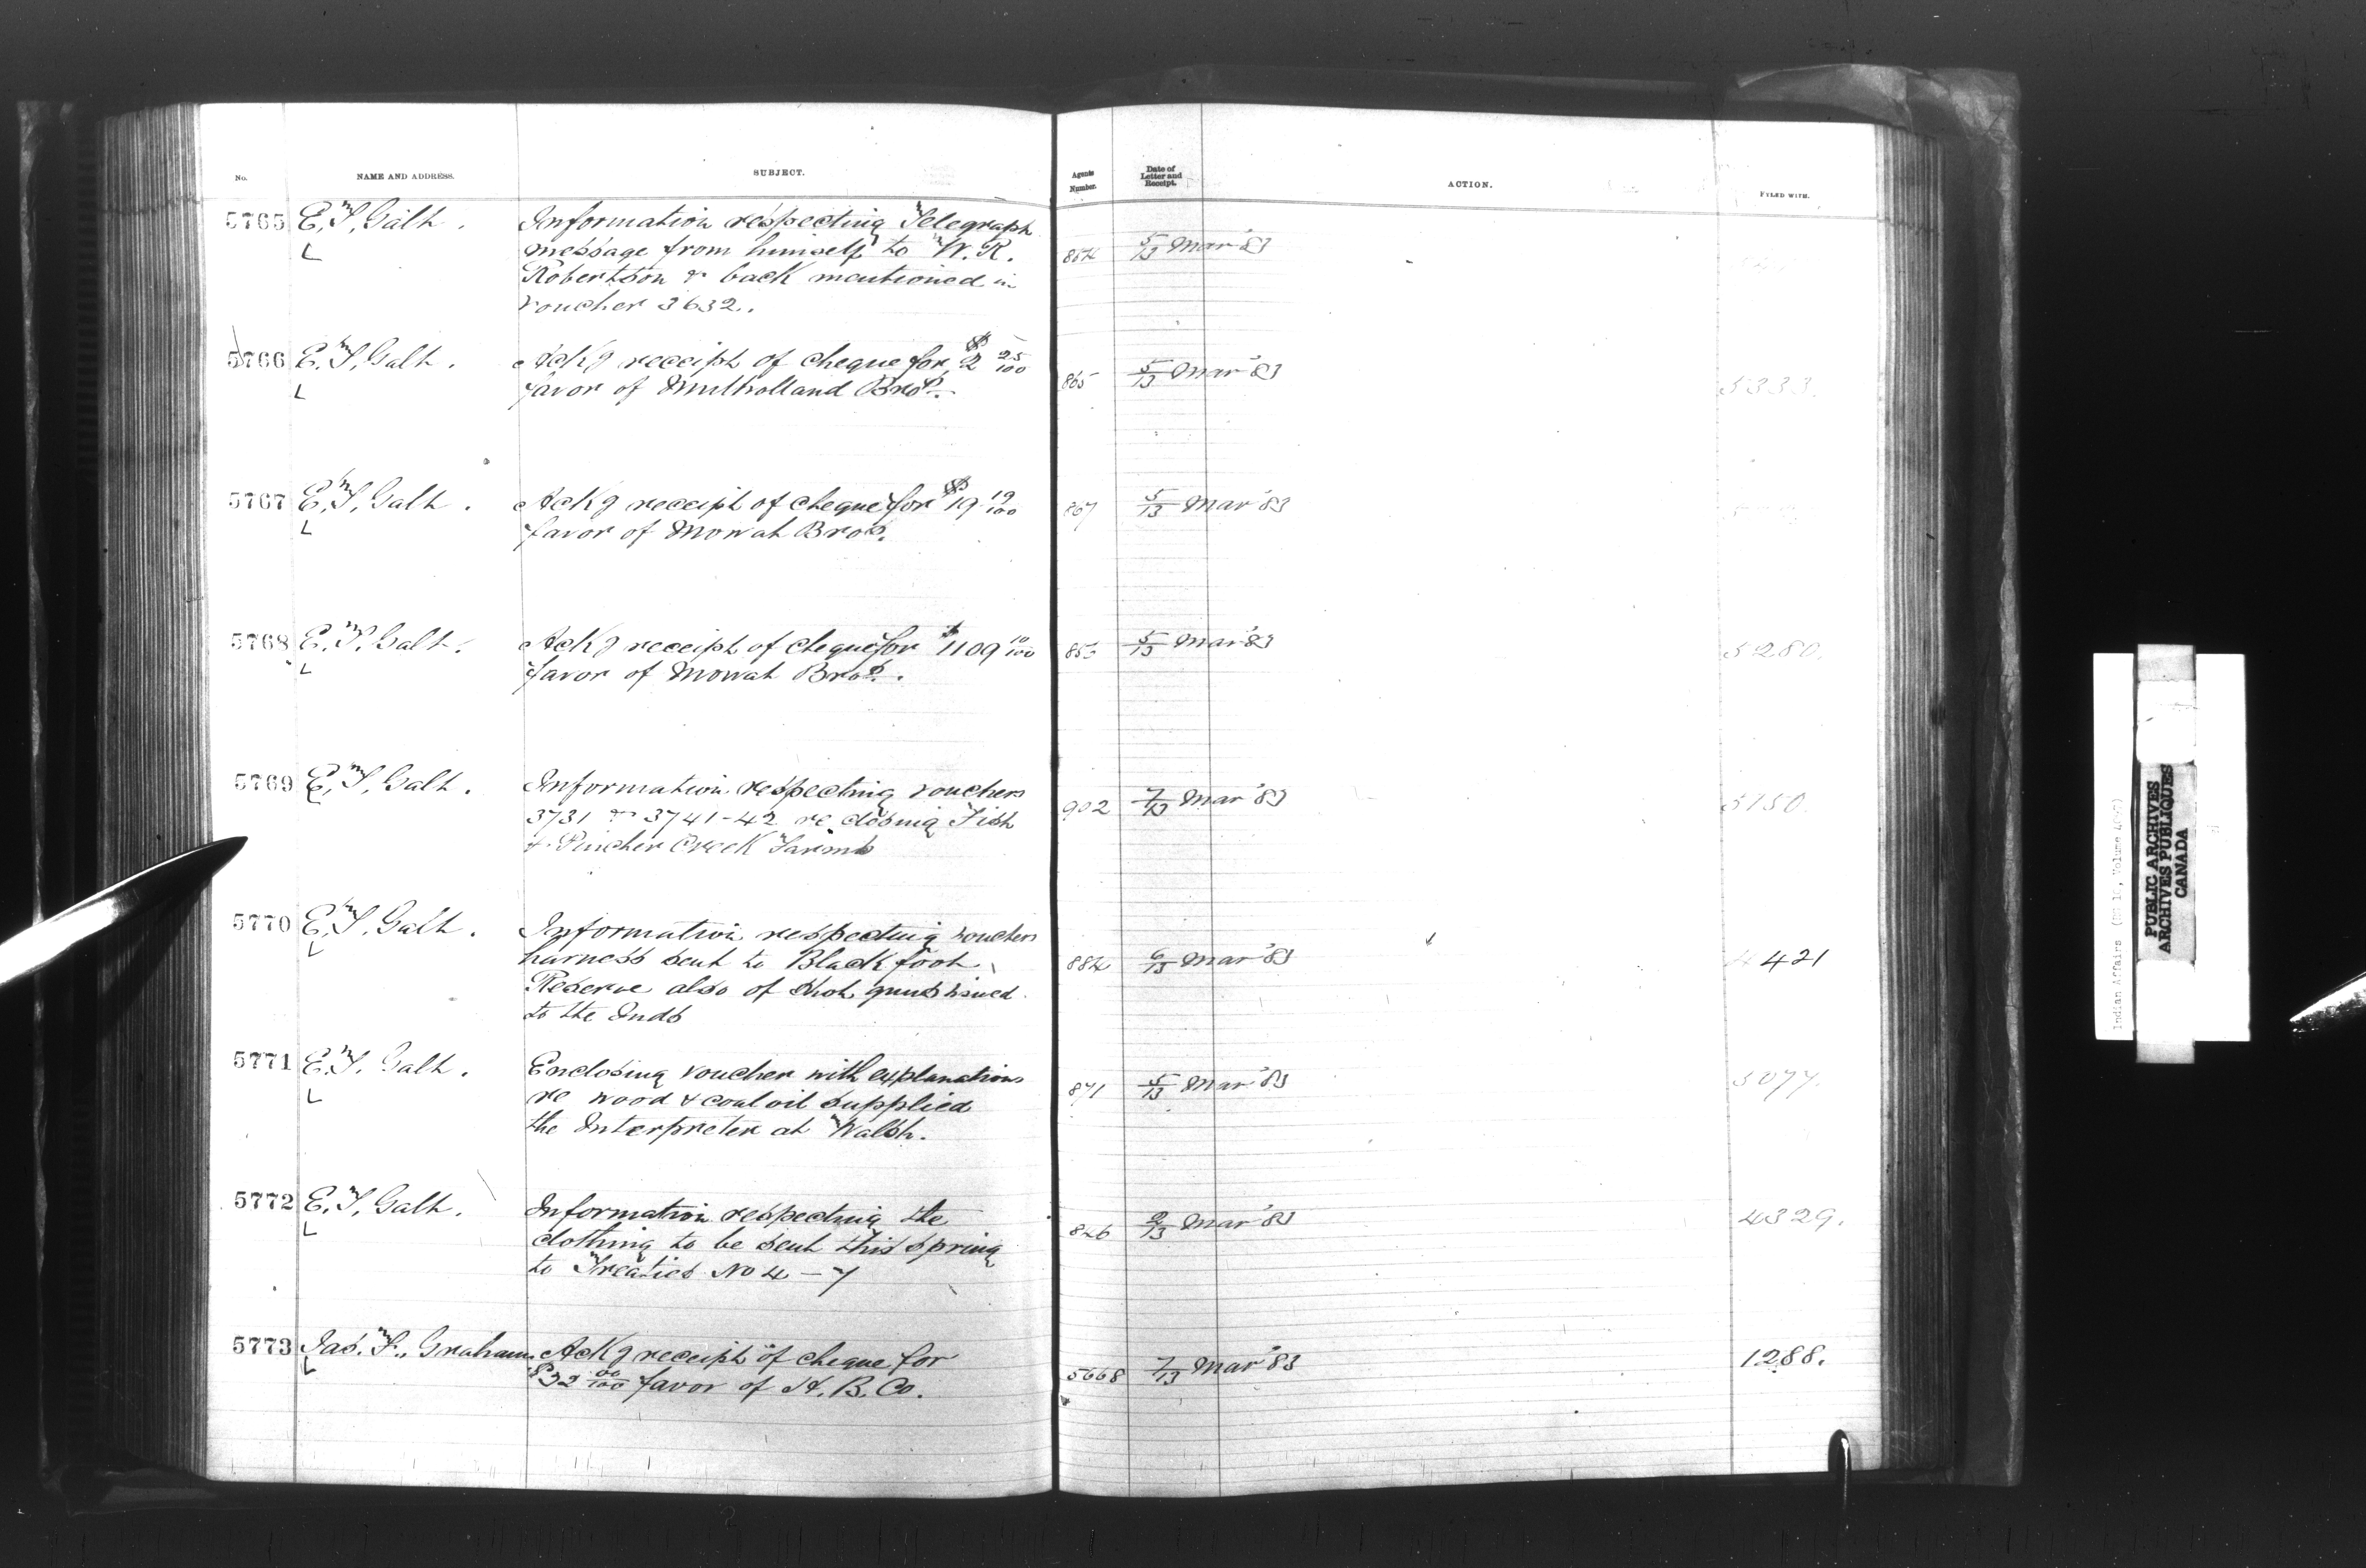 No. NAME AND ADDRESS. SUBJECT. Agents Number. Date of Letter and Receipt. ACTION. FYLED WITH.
5765 E. T. Galt. Information respecting Telegraph
message from himself to W. R. 864 5/13 Mar '83
Robertson & back mentioned in
voucher 3632.
5766 E. T. Galt. Ackg receipt of cheque for $2 25/100
favor of Mulholland Bros. 865 5/13 Mar '83 5333.
5767 E. T. Galt. Ackg receipt of cheque for $19 19/100 867 5/13 Mar '83
favor of Mowat Bros.
5768 E. T. Galt. Ackg receipt of cheque for $1109 10/100 5/13 Mar '83 5280.
favor of Mowat Bros.
5769 E. T. Galt. Information respecting vouchers
3731 & 3741-42 re closing Fish 902 7/13 Mar '83 5150.
& Pincher Creek Farms
5770 E. T. Galt. Information respecting vouchers
harness sent to Blackfoot 884 6/13 Mar '83 4421
Reserve also of shot guns issued
to the Inds
5771 E. T. Galt. Enclosing voucher with explanations
re wood & coal oil supplied 871 5/13 Mar '83 5077.
the Interpreter at Walsh.
5772 E. T. Galt. Information respecting the
clothing to be sent this spring 826 2/13 Mar '83 4329.
to Treaties No 4 – 7
5773 Jas. F. Graham. Ackg receipt of cheque for
$32 00/100 favor of H. B. Co. 5668 7/13 Mar '83 1288.
Indian Affairs (RG 10, Volume
PUBLIC ARCHIVES
ARCHIVES PUBLIQUES
CANADA